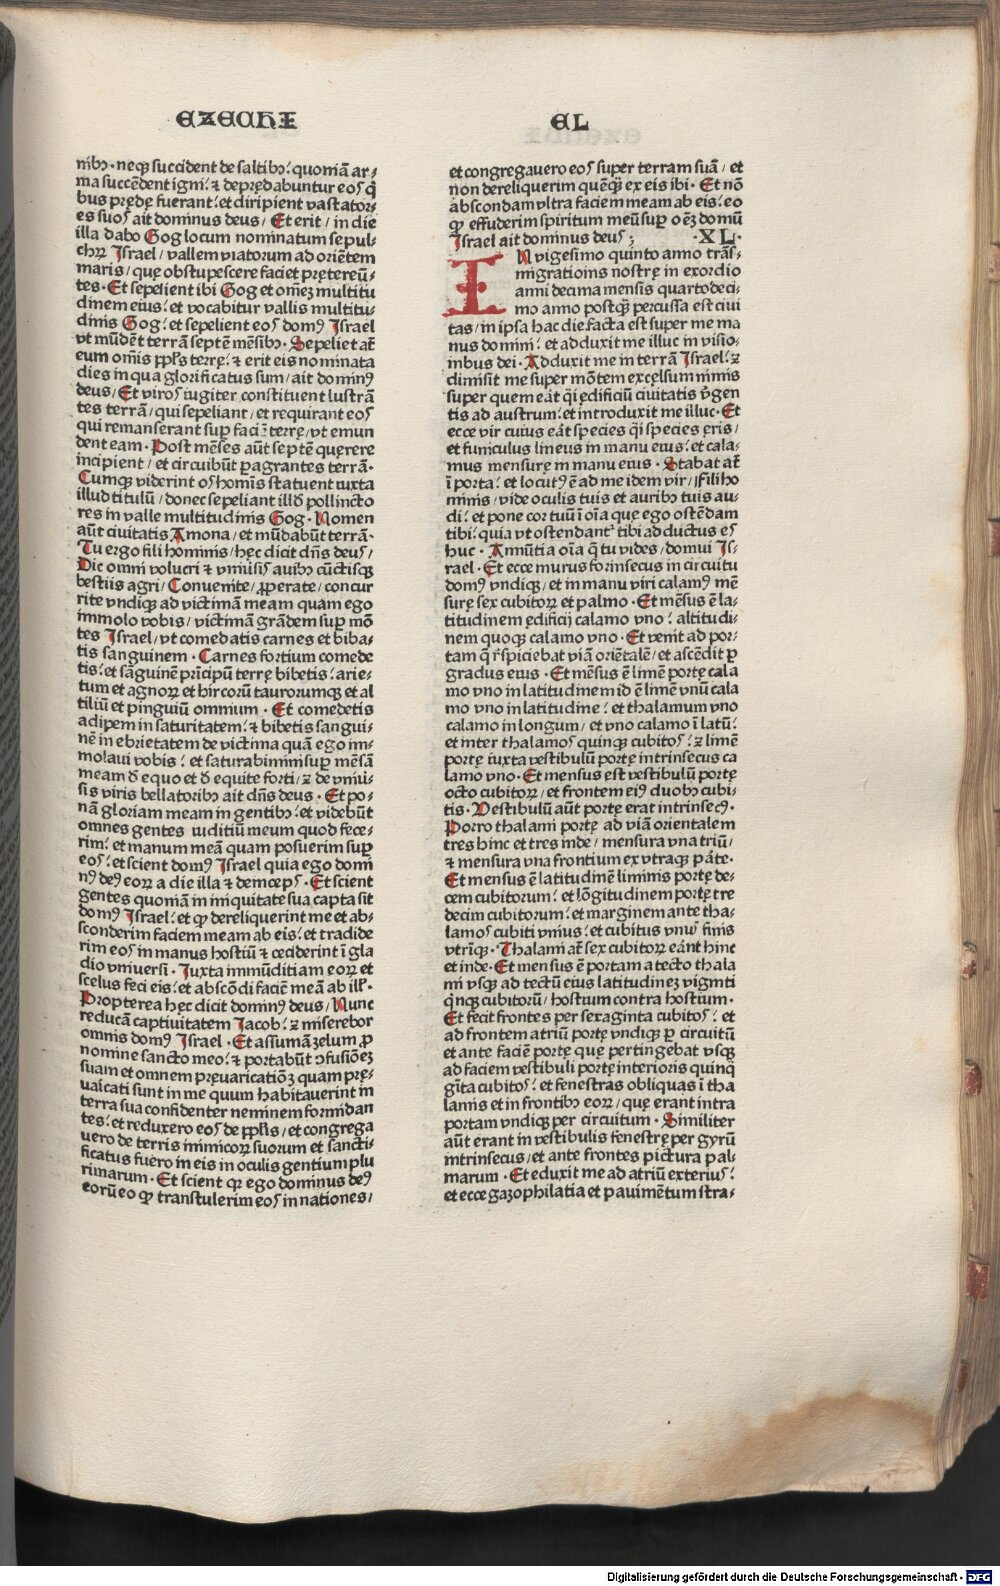 EZECHI EL
nibꝫ·neqꝫ succident de saltibꝫ: quoniā ar⸗
ma succēdent igni: ⁊ depręd abuntur eos q̄
bus prędę fuerant: et diripient vastator⸗
es suos ait dominus deus / Et erit / in die
illa dabo Gog locum nominatum sepul⸗
chꝝ Israel / vallem viatorum ad oriētem
maris / quę obstupescere faciet prętereū⸗
tes·Et sepelient ibi Gog et omēꝫ multitu
dinem eius: et vocabitur vallis multitu⸗
dinis Gog: et sepelient eos domꝰ Israel
vt mūdēt terrā septē mēsibꝫ·Sepeliet at̄
eum om̄is ppl̄s terrę: ⁊ erit eis nominata
dies in qua glorificatus sum / ait dominꝰ
deus / Et viros iugiter constituent lustrā
tes terrā / qui sepeliant / et requirant eos
qui remanserant sup̄ faciē terrę / vt emun
dent eam·Post mēses aūt septē querere
incipient / et circuibūt p̲agrantes terrā·
Cumqꝫ viderint os homīs statuent iuxta
illud titulū / donec sepeliant illd̄ pollincto
res in valle multitudinis Gog·Nomen
aūt ciuitatis Amona / et mūdabūt terrā·
Tu ergo fili hominis / hęc dicit dn̄s deus /
Dic omni volucri ⁊ vniuīsis auibꝫ cūctisqꝫ
bestiis agri / Conuenite / ꝓperate / concur
rite vndiqꝫ ad victimā meam quam ego
immolo vobis / victimā grādem sup̄ mō
tes Israel / vt comedatis carnes et biba⸗
tis sanguinem·Carnes fortium comede
tis: et sāguinē prīcipū terrę bibetis: arie⸗
tum et agnoꝝ et hircorū taurorumqꝫ et al
tiliū et pinguiū omnium·Et comedetis
adipem in saturitatem: ⁊ bibetis sangui⸗
nē in ebrietatem de victima quā ego im⸗
molaui vobis: et saturabimini sup̄ mēsā
meam đ equo et đ equite forti / ⁊ de vniu⸗
sis viris bellatoribꝫ ait dn̄s deus·Et po⸗
nā gloriam meam in gentibꝫ: et videbūt
omnes gentes iuditiū meum quod fece⸗
rim: et manum meā quam posuerim sup̄
eos: et scient domꝰ Israel quia ego domi
nꝰ deꝰ eoꝝ a die illa ⁊ deinceps·Et scient
gentes quoniā in iniquitate sua capta sit
domꝰ Israel: et ꝙ dereliquerint me et ab⸗
sconderim faciem meam ab eis: et tradide
rim eos in manus hostiū ⁊ ceciderint ī gla
dio vniuersi·Juxta immūditiam eoꝝ et
scelus feci eis: et abscōdi faciē meā ab ill̄·
Propterea hęc dicit dominꝰ deus / Nunc
reducā captiuitatem Jacob: ⁊ miserebor
omnis domꝰ Israel·Et assumā zelum ꝓ
nomine sancto meo: ⁊ portabūt ɔfusiōeꝫ
suam et omnem pręuaricatiōꝫ quam pre⸗
uaīcati sunt in me quum habitauerint in
terra sua confidenter neminem formidan
tes: et reduxero eos de ppl̄is / et congrega
uero de terris inimicoꝝ suorum et sancti⸗
ficatus fuero in eis in oculis gentium plu
rimarum·Et scient ꝙ ego dominus deꝰ
eorū eo ꝙ transtulerim eos in nationes /
et congregauero eos super terram suā / et
non dereliquerim quēqꝫ̄ ex eis ibi·Et nō
abscondam vltra faciem meam ab eis: eo
ꝙ effuderim spiritum meū sup̄ oēꝫ domū
Israel ait dominus deus; ·XL·
IN vigesimo quinto anno trās⸗
migrationis nostrę in exordio
anni decima mensis quartodeci⸗
mo anno postqꝫ̄ percussa est ciui
tas / in ipsa hac die facta est super me ma
nus domini: et adduxit me illuc in visio⸗
nibus dei·Adduxit me in terrā Israel: ⁊
dimisit me super mōtem excęlsum nimis
super quem eāt q̄i ędificiū ciuitatis v̄gen
tis ad austrum: et introduxit me illuc·Et
ecce vir cuius eāt species q̄i species ęris /
et funiculus lineus in manu eius: et cala⸗
mus mensurę in manu eius·Stabat at̄
ī porta: et locutꝰ ē ad me idem vir / Fili ho
minis / vide oculis tuis et auribꝫ tuis au⸗
di: et pone cor tuū ī oīa que ego ostēdam
tibi: quia vt ostendantꝛ tibi adductus es
huc·Annūtia oīa q̄ tu vides / domui Is⸗
rael·Et ecce murus forinsecus in circuitu
domꝰ vndiqꝫ / et in manu viri calamꝰ mē
surę sex cubitoꝝ et palmo·Et mēsus ē la⸗
titudinem ędificij calamo vno: altitudi⸗
nem quoqꝫ calamo vno·Et venit ad por⸗
tam q̄ r̄spiciebat viā oriētalē / et ascēdit p̲
gradus eius·Et mēsus ē limē portę cala
mo vno in latitudinem id ē limē vnū cala
mo vno in latitudine: et thalamum vno
calamo in longum / et vno calamo ī latū:
et inter thalamos quinqꝫ cubitos: ⁊ limē
portę iuxta vestibulū portę intrinsecus ca
lamo vno·Et mensus est vestibulū portę
octo cubitoꝝ / et frontem eiꝰ duobꝫ cubi⸗
tis·Vestibulū aūt portę erat intrinsecꝰ·
Porro thalami portę ad viā orientalem
tres hinc et tres inde / mensura vna triū /
⁊ mensura vna frontium ex vtraqꝫ pāte·
Et mensus ē latitudinē liminis portę de⸗
cem cubitorum: et lōgitudinem portę tre
decim cubitorum: et marginem ante tha⸗
lamos cubiti vnius: et cubitus vnus finis
vtrīqꝫ·Thalami at̄ sex cubitoꝝ eānt hinc
et inde·Et mensus ē portam a tecto thala
mi vsqꝫ ad tectū eius latitudineꝫ viginti
q̄nqꝫ cubitorū / hostium contra hostium·
Et fecit frontes per sexaginta cubitos: et
ad frontem atriū portę vndiqꝫ p̲ circuitū
et ante faciē portę quę pertingebat vsqꝫ
ad faciem vestibuli portę interioris quinq̄
gīta cubitos: et fenestras obliquas ī tha
lamis et in frontibꝫ eoꝝ / quę erant intra
portam vndiqꝫ per circuitum·Similiter
aūt erant in vestibulis fenestrę per gyrū
intrinsecus / et ante frontes pictura pal⸗
marum·Et eduxit me ad atriū exterius:
et ecce gazophilatia et pauimētum stra⸗
Digitalisierung gefördert durch die Deutsche Forschungsgemeinschaft - DFG